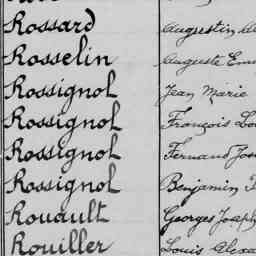 Rossard Augustin
Rosselin Auguste
Rossignol Jean Marie
Rossignol François
Rossignol Fernand
Rossignol Benjamin
Rouault Georges Joseph
Rouiller Louis